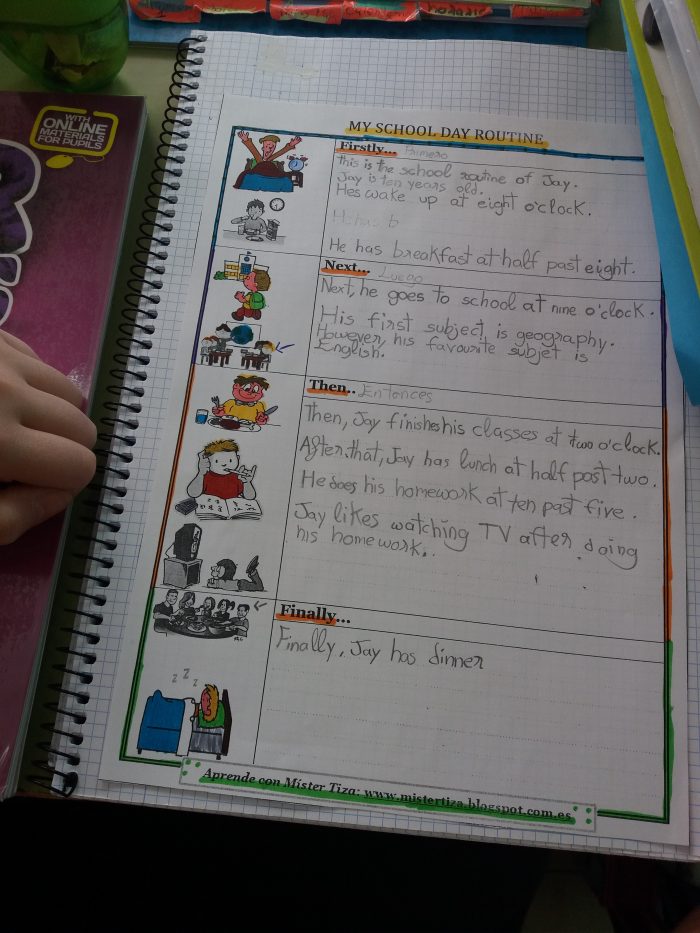 WITH
ONLINE
MATERIALS
FOR PUPILS
MY SCHOOL DAY ROUTINE
Firstly... Primero
This is the school routine of Jay.
Jay is ten years old.
Hes wake up at eight o'clock.
He has breakfast at half past eight.
Next... Luego
Next, he goes to school at nine o'clock.
His first subject is geography.
However, his favourite subjet is
English.
Then... Entonces
Then, Jay finishes his classes at two o'clock.
After that, Jay has lunch at half past two.
He does his homework at ten past five.
Jay likes watching TV after doing
his homework.
Finally...
Finally, Jay has dinner
z z z
Aprende con Míster Tiza: www.mistertiza.blogspot.com.es